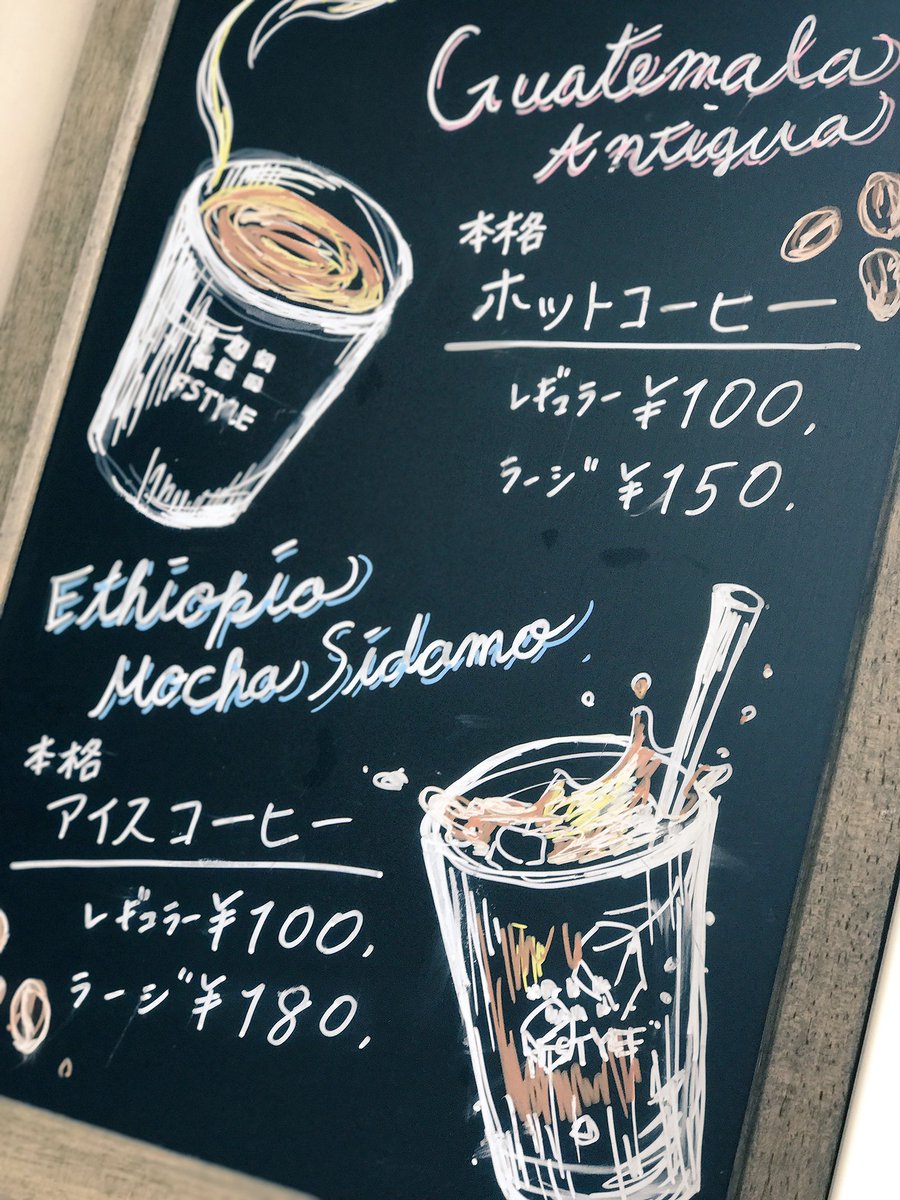 Guatemala
Antigua
本格
ホットコーヒー
レギュラー ¥100,
ラージ ¥150.
Ethiopia
Mocha Sidamo
本格
アイスコーヒー
レギュラー ¥100,
ラージ ¥180,